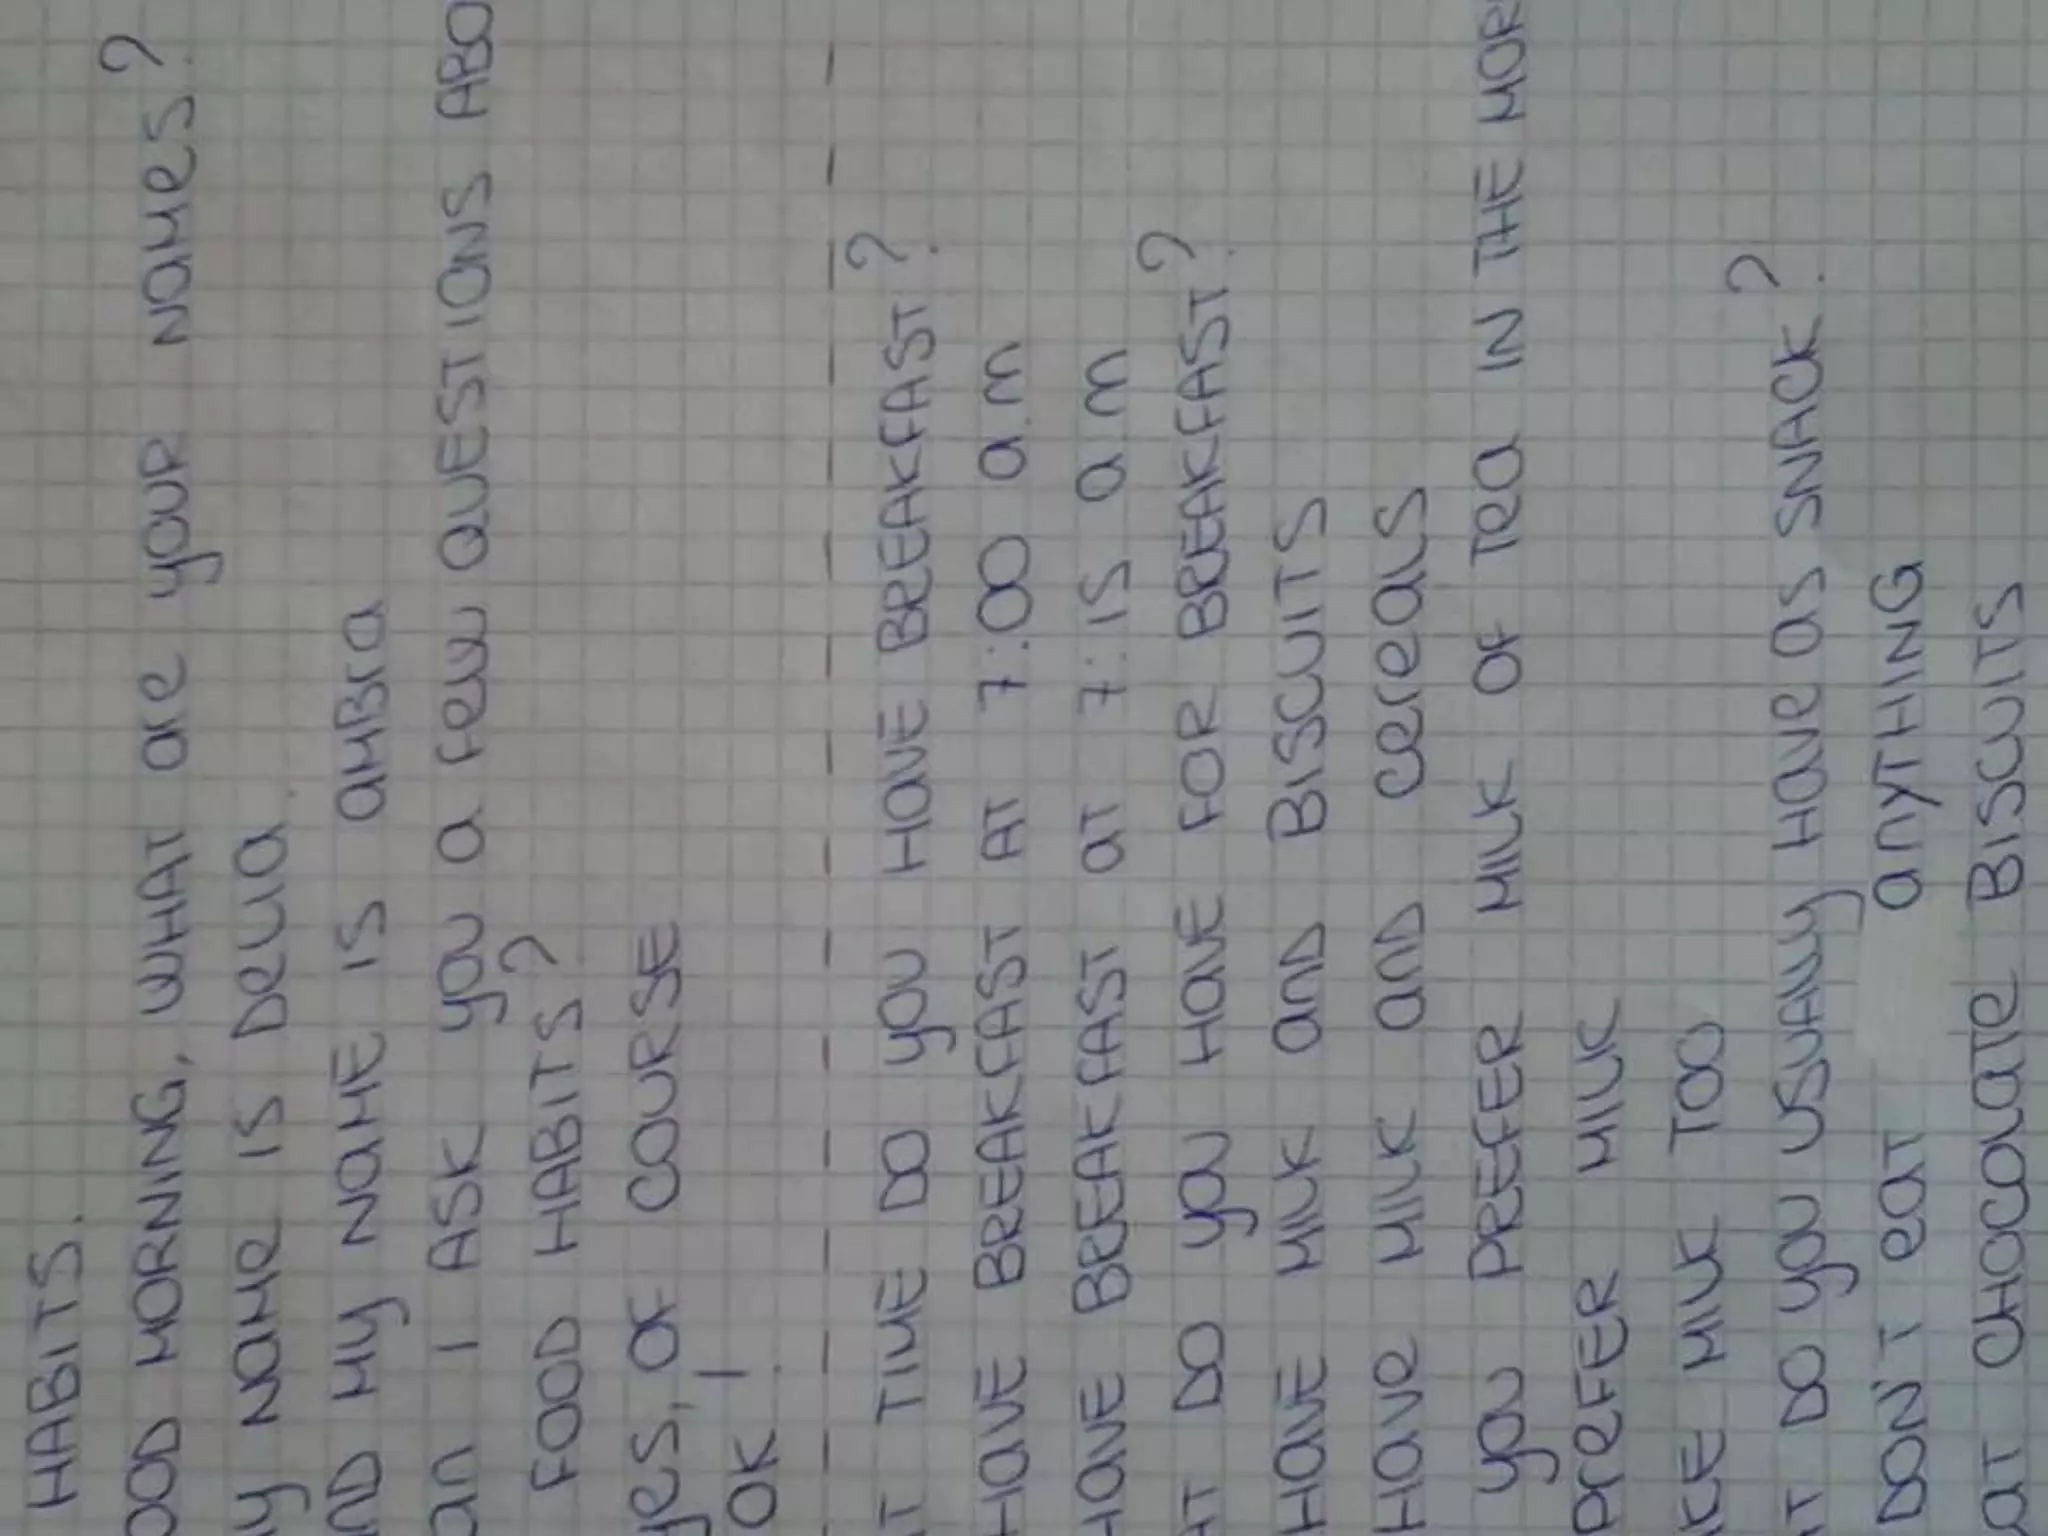 HABITS.
OOD MORNING, WHAT are your NaMes?
My NaMe IS Delia
ND My NaME IS aMBra
an I ASK you a Few QUESTIONS ABO
FOOD HABITS?
yes, OF COURSE
OK!
T TIME DO you HaVE BREAKFAST?
HaVE BREAKFAST AT 7:00 a.m
HaVE BREAKFAST aT 7:15 a.m
AT DO you HaVE FOR BREAKFAST?
HaVE MILK anD BISCUITS
Have MILK anD cereaLS
you PREFER MILK OF Tea IN THE MOR
PreFER MILK
KE MILK TOO
T DO you USUALLy Have as SNACK?
DON'T eaT anyTHING
aT CHOCOLaTe BISCUITS